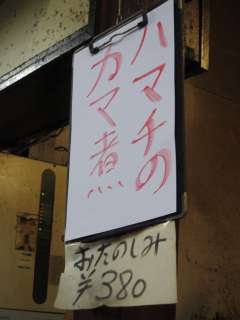 ハマチの
カマ煮
おたのしみ
¥380